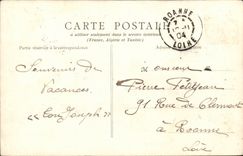 CARTE POSTALE
à utiliser seulement dans le service intérieur
(France, Algérie et Tunisie)
Partie réservée à la correspondance
ROANNE
04
LOIRE
Souvenir de
Vacances.
"Ton Joseph"
Monsieur
Pierre Petitjean
91 Rue de Clermont
à Roanne
Loire